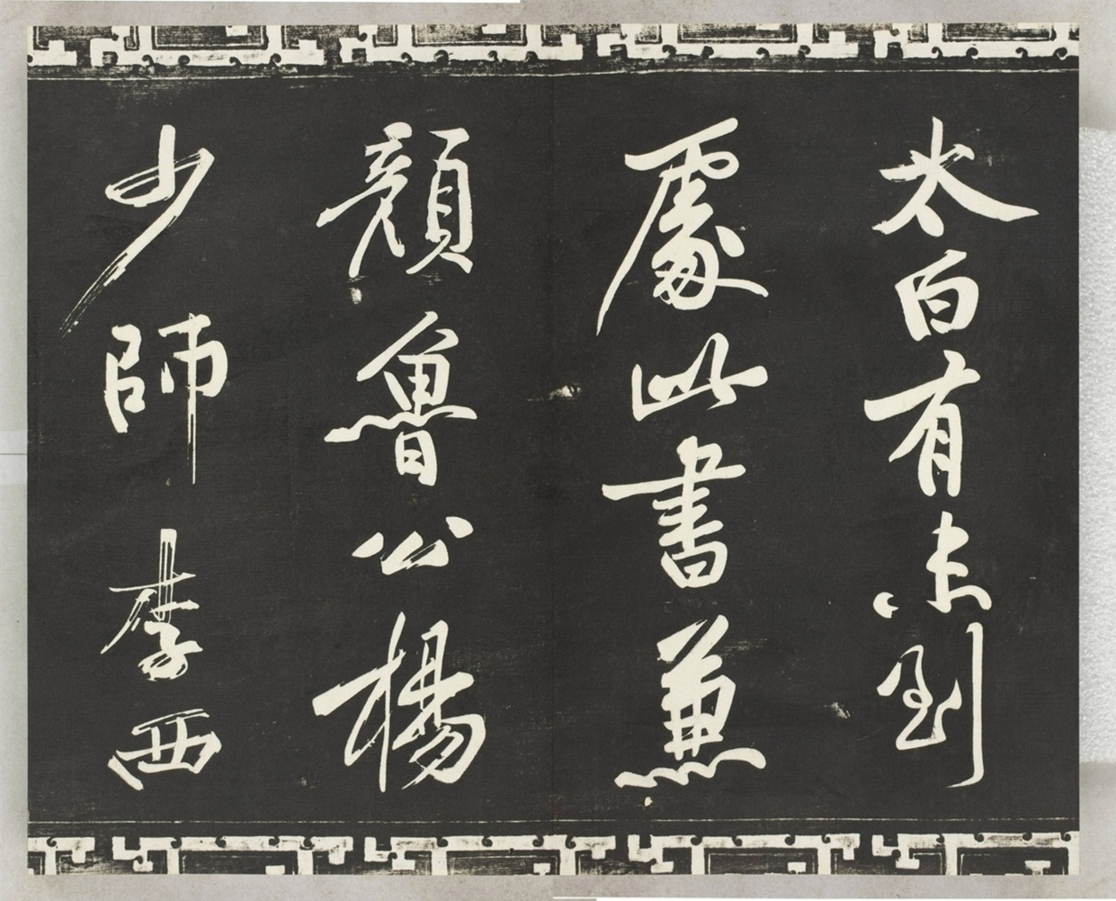 太白有未到
處此書兼
顏魯公楊
少師李西